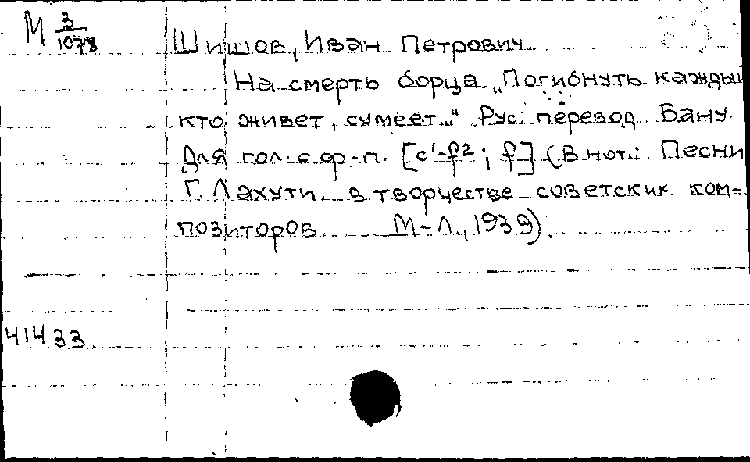 М 3/1078
Шишов, Иван Петрович
На смерть борца „Погибнуть кажды
кто живет, сумеет..." Рус. перевод Бану.
Для гол. с ф-п. [c¹-f²; f] (В нот.: Песни
Г. Лахути в творчестве советских ком=
позиторов М-Л., 1939).
41433